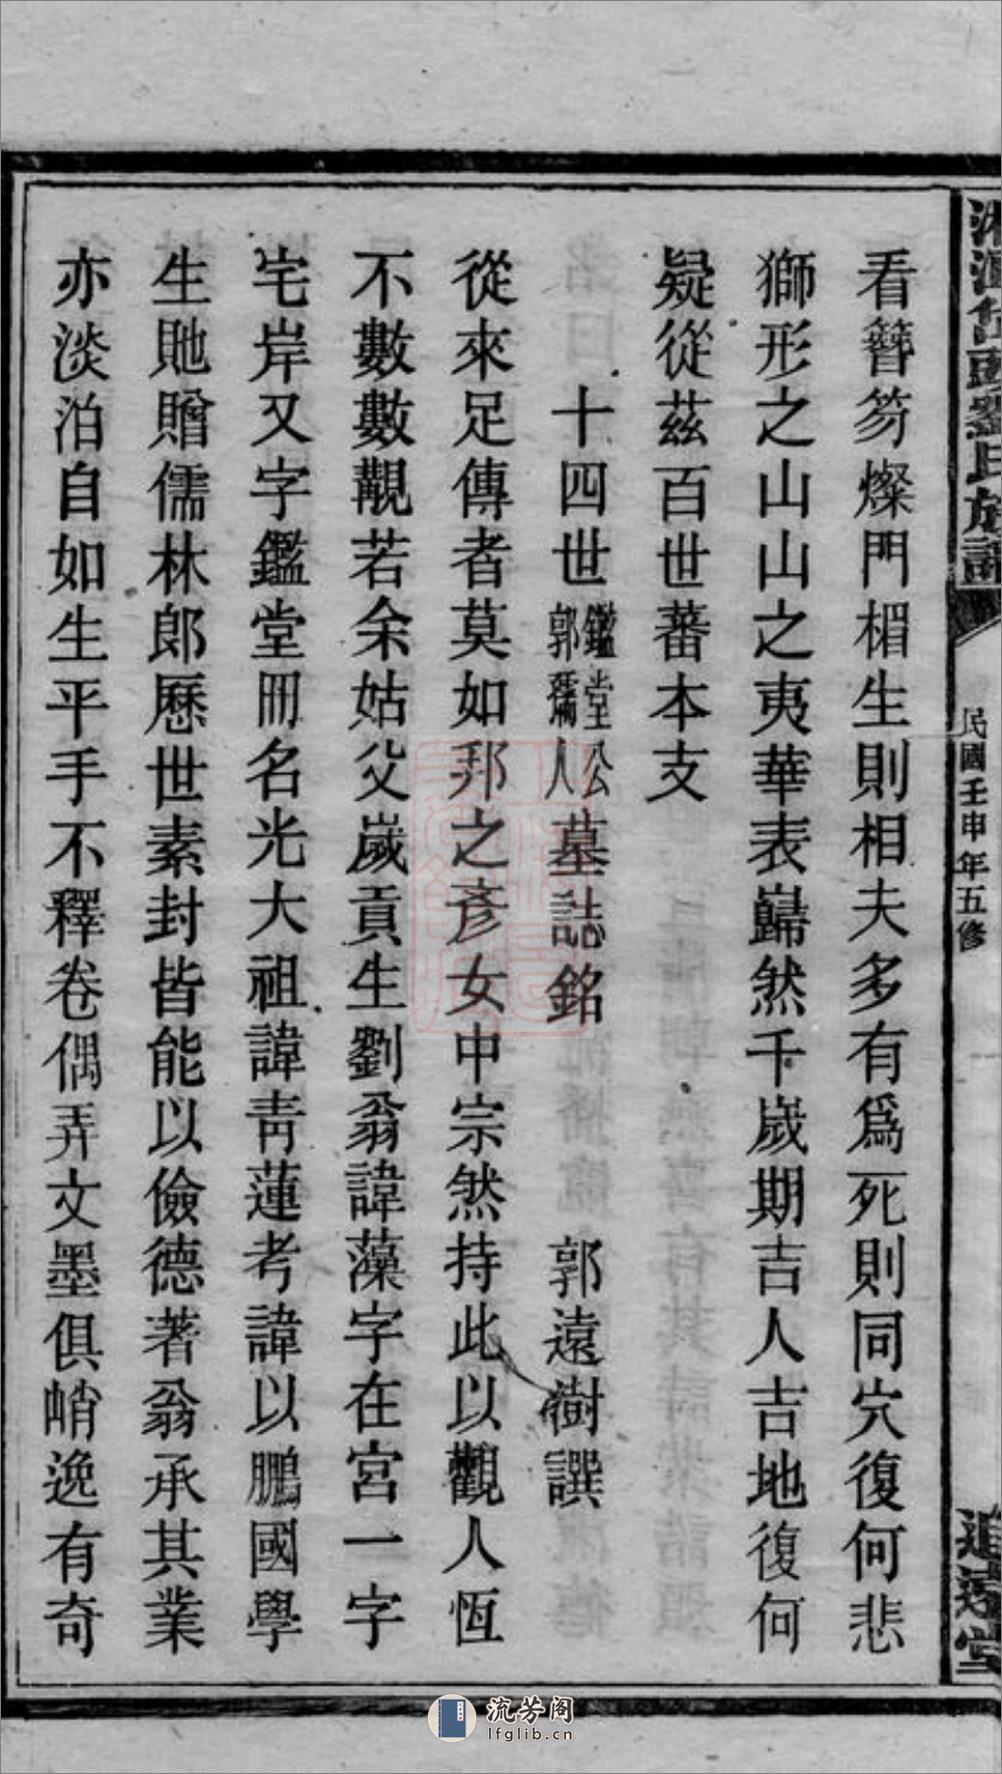 劉氏族譜
民國壬申年五修
追遠堂
看簪笏燦門楣生則相夫多有爲死則同穴復何悲
獅形之山山之夷華表歸然千歲期吉人吉地復何
疑從茲百世蕃本支
十四世鑑堂公郭孺人墓誌銘 郭遠澍譔
從來足傳者莫如邦之彥女中宗然持此以觀人恆
不數數觏若余姑父歲貢生劉翁諱藻字在宮一字
宅岸又字鑑堂冊名光大祖諱靑蓮考諱以鵬國學
生貤贈儒林郎歷世素封皆能以儉德著翁承其業
亦淡泊自如生平手不釋卷偶弄文墨俱峭逸有奇
流芳阁
lfglib.cn